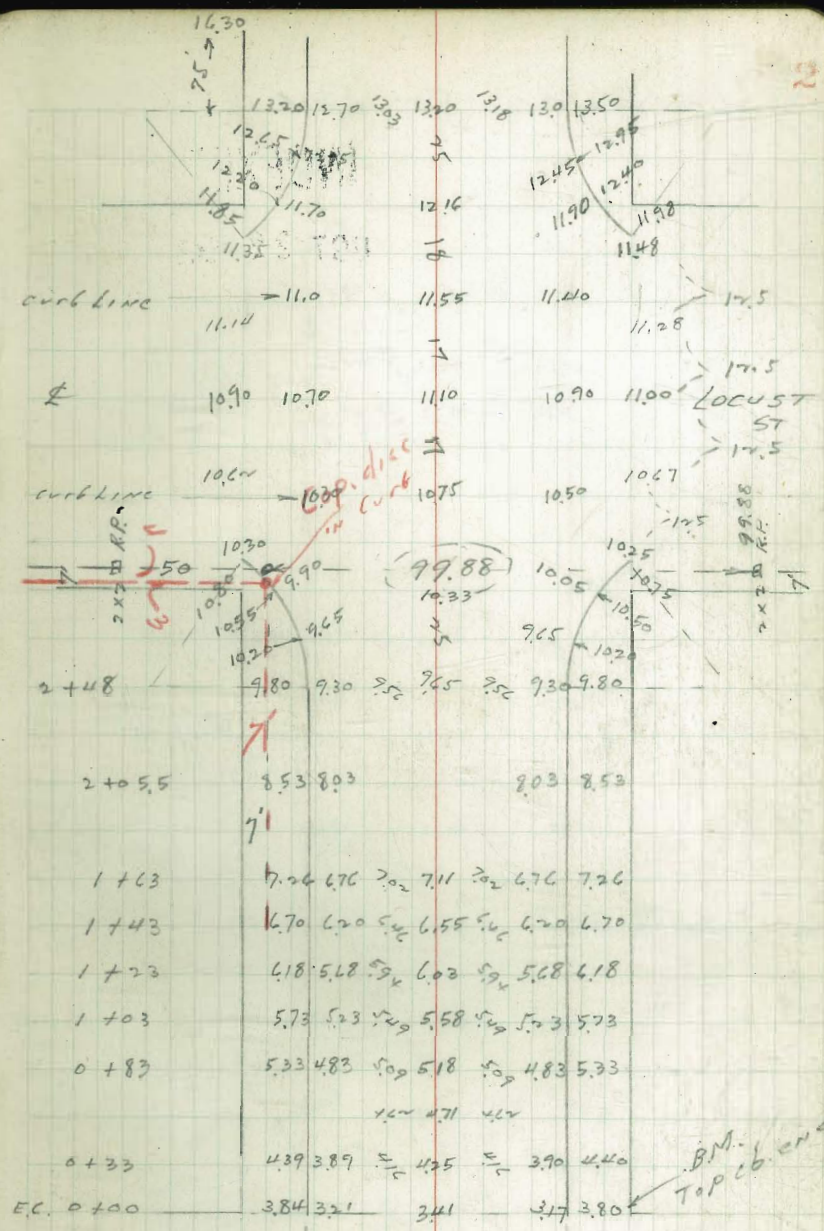 16.30
75'
2
13.20 12.70 13.03 13.20 13.18 13.0 13.50
12.65 25 12.45 12.95
12.20 12.40
11.85 11.70 12.16 11.90 11.98
11.35 18 11.48
curb Line 11.0 11.55 11.40 12.5
11.14 11.28
17 12.5
℄ 10.90 10.70 11.10 10.90 11.00 LOCUST
ST
17 12.5
10.62 C.P. disc 10.67
curb Line 10.30 IN Curb 10.75 10.50
12.5
10.30 10.25
2x2 R.P. 50 9.90 99.88 10.05 10.75 99.88 2x2 R.P.
7' 10.80 10.33 7'
10.55 10.50
10.20 9.65 25 9.65 10.20
2+48 9.80 9.30 9.56 9.65 9.56 9.30 9.80
2+05.5 8.53 8.03 8.03 8.53
7'
1+63 7.26 6.76 7.02 7.11 7.02 6.76 7.26
1+43 6.70 6.20 6.55 6.20 6.70
1+23 6.18 5.68 5.94 6.03 5.94 5.68 6.18
1+03 5.73 5.23 5.49 5.58 5.49 5.23 5.73
0+83 5.33 4.83 5.09 5.18 5.09 4.83 5.33
4.62 4.71 4.62
0+33 4.39 3.89 4.16 4.25 4.16 3.90 4.40
B.M.
TOP
E.C. 0+00 3.84 3.21 3.41 3.17 3.80